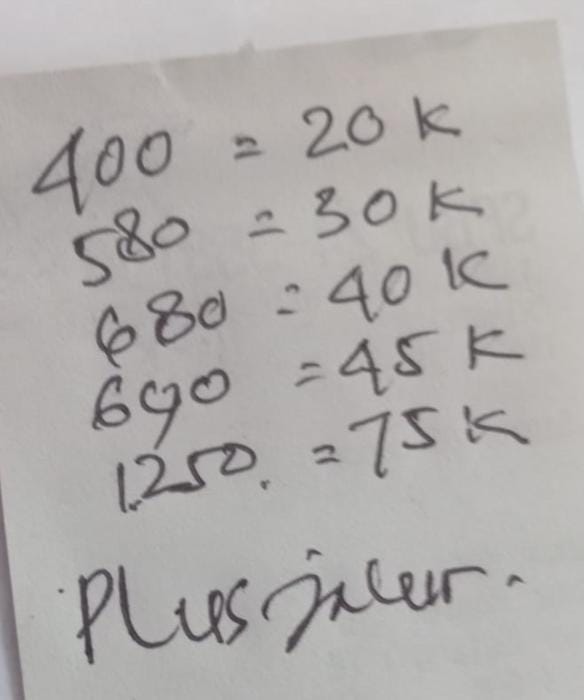 400 = 20 K
580 = 30 K
680 = 40 K
690 = 45 K
1.250. = 75 K
Plus